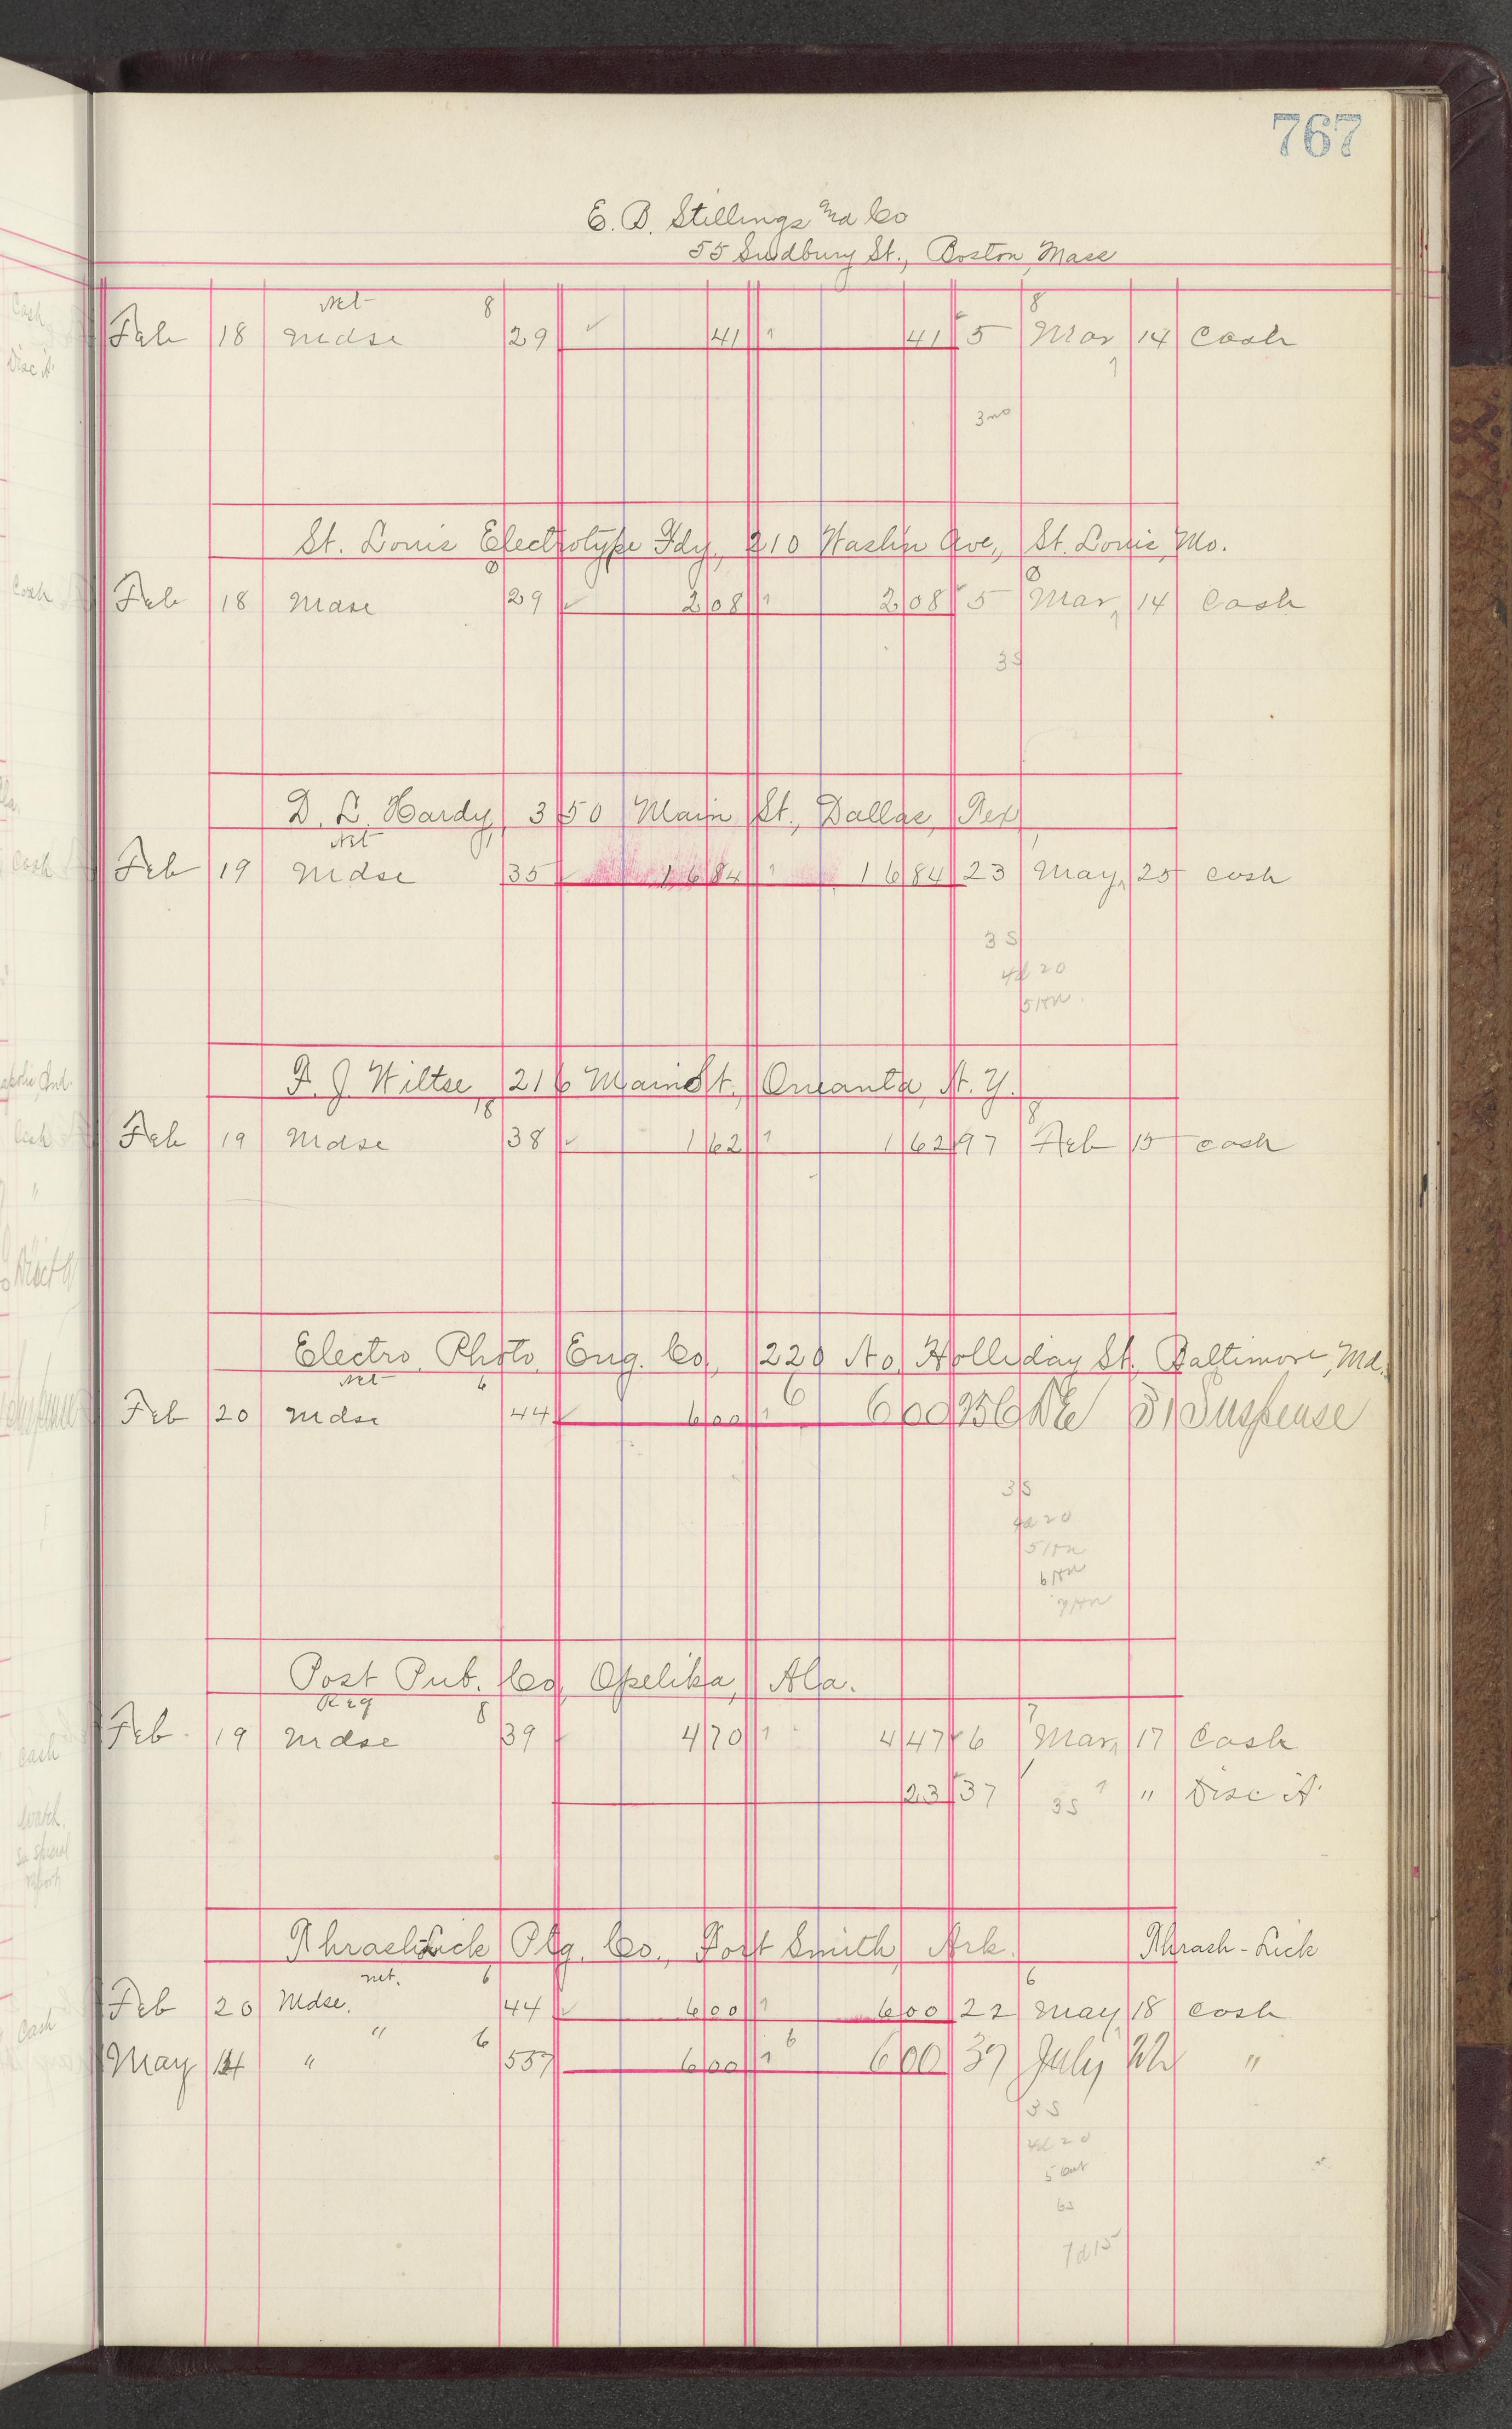 767
E. B. Stillings and Co
55 Sudbury St., Boston, Mass
Net 8 8
Feb 18 Mdse 29 ✓ 41 1 41 5 Mar 14 Cash
1
3mo
St. Louis Electrotype Fdy, 210 Washn Ave, St. Louis, Mo.
8 8
Feb 18 Mdse 29 ✓ 2 08 1 2 08 5 Mar 14 Cash
3S
D. L. Hardy, 350 Main St., Dallas, Tex
Net 1 1
Feb 19 Mdse 35 ✓ 16 84 1 16 84 23 May 25 Cash
3 S
4d 20
F. J. Wiltse, 216 Main St., Oneanta, N. Y.
18 8
Feb 19 Mdse 38 ✓ 1 62 1 1 62 97 Feb 15 Cash
Electro Photo Eng. Co., 220 No. Holliday St. Baltimore, Md.
Net 6 6
Feb 20 Mdse 44 ✓ 6 00 1 6 00 256 De 31 Suspense
3 S
4d 20
Post Pub. Co, Opelika, Ala.
Reg 8 7
Feb. 19 Mdse 39 4 70 1 4 47 6 Mar 17 Cash
23 37 1 " Disc A
3S
Thrash-Lick Ptg. Co., Fort Smith, Ark. Thrash-Lick
net. 6 6
Feb 20 Mdse. 44 ✓ 6 00 1 6 00 22 May 18 Cash
" 6 6
May 14 " 557 6 00 1 6 00 37 July 22 "
3 S
4d 20
5 out
6s
7d15